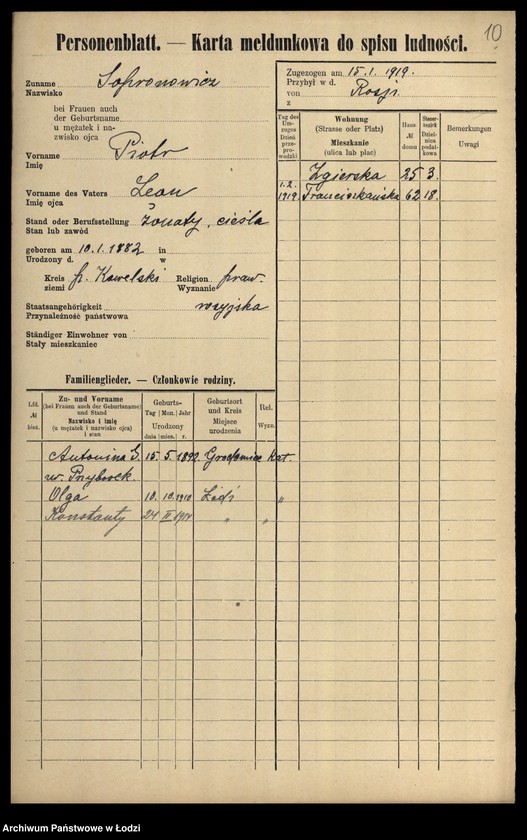 10
Personenblatt. — Karta meldunkowa do spisu ludności.
Zuname Sofronowicz
Nazwisko
bei Frauen auch
der Geburtsname
u mężatek i na-
zwisko ojca
Vorname Piotr
Imię
Vorname des Vaters Leon
Imię ojca
Stand oder Berufsstellung żonaty, cieśla
Stan lub zawód
geboren am 10.1.1882 in
Urodzony d. w
Kreis p. Kowelski Religion praw.
ziemi Wyznanie
Staatsangehörigkeit rosyjska
Przynależność państwowa
Ständiger Einwohner von
Stały mieszkaniec
Zugezogen am 15.1.1919.
Przybył w d.
von Rosji
z
Tag des Um-zuges Dzień prze-prowadzki
Wohnung (Strasse oder Platz) Mieszkanie (ulica lub plac)
Haus № domu
Steuer-bezirk Dziel-nica podat-kowa
Bemerkungen Uwagi
Zgierska 25 3.
1.2. 1919 Franciszkańska 62 18.
Familienglieder. — Członkowie rodziny.
Lfd. № bież.
Zu- und Vorname (bei Frauen auch der Geburtsname) und Stand Nazwisko i imię (u mężatek i nazwisko ojca) i stan
Geburts- Tag Mon. Jahr Urodzony dnia mies. r.
Geburtsort und Kreis Miejsce urodzenia
Rel. Wyzn.
Antonina S. 15. 5. 1892. Kat.
w.
Olga 10. 10. 1910 Łódź "
Konstanty 24 II 1914 " "
Archiwum Państwowe w Łodzi